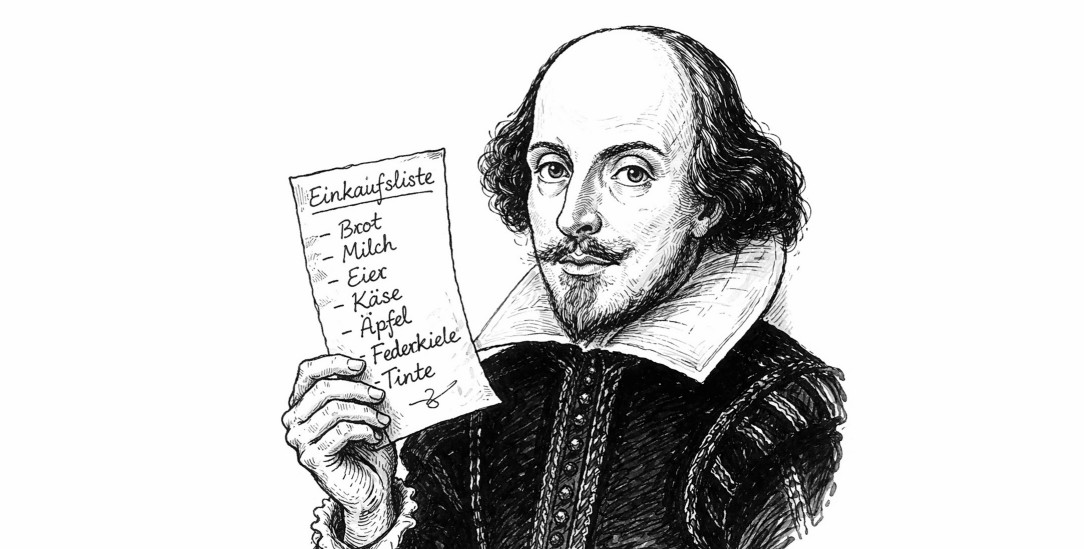 Einkaufsliste
– Brot
– Milch
– Eier
– Käse
– Äpfel
– Federkiele
– Tinte